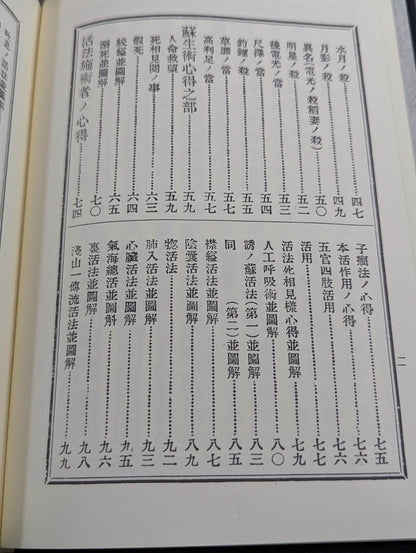 水月ノ殺……四七
月影ノ殺……四九
異名(電光ノ殺稻妻ノ殺)……五〇
明星ノ殺……五二
後電光ノ當……五三
尺澤ノ當……五四
釣鐘ノ殺……五五
草靡ノ當……五七
高利足ノ當……五九
蘇生術心得之部
人命救望……五九
死相見問ノ事……六三
假死……六四
絞縊並圖解……六五
溺死並圖解……七〇
活法施術者ノ心得……七四
子搦法ノ心得……七五
本活作用ノ心得……七六
五官四肢活用……七六
活用……七七
活法死相見樣心得並圖解……七九
人工呼吸術並圖解……八〇
誘ノ蘇活法(第一)並圖解……八三
同 (第二)並圖解……八五
襟縊活法並圖解……八七
陰嚢活法並圖解……八九
惣活法……九二
肺入活法並圖解……九三
心臟活法並圖解……九五
氣海總活並圖解……九六
裏活法並圖解……九八
淺山一傳流活法並圖解……九九
二